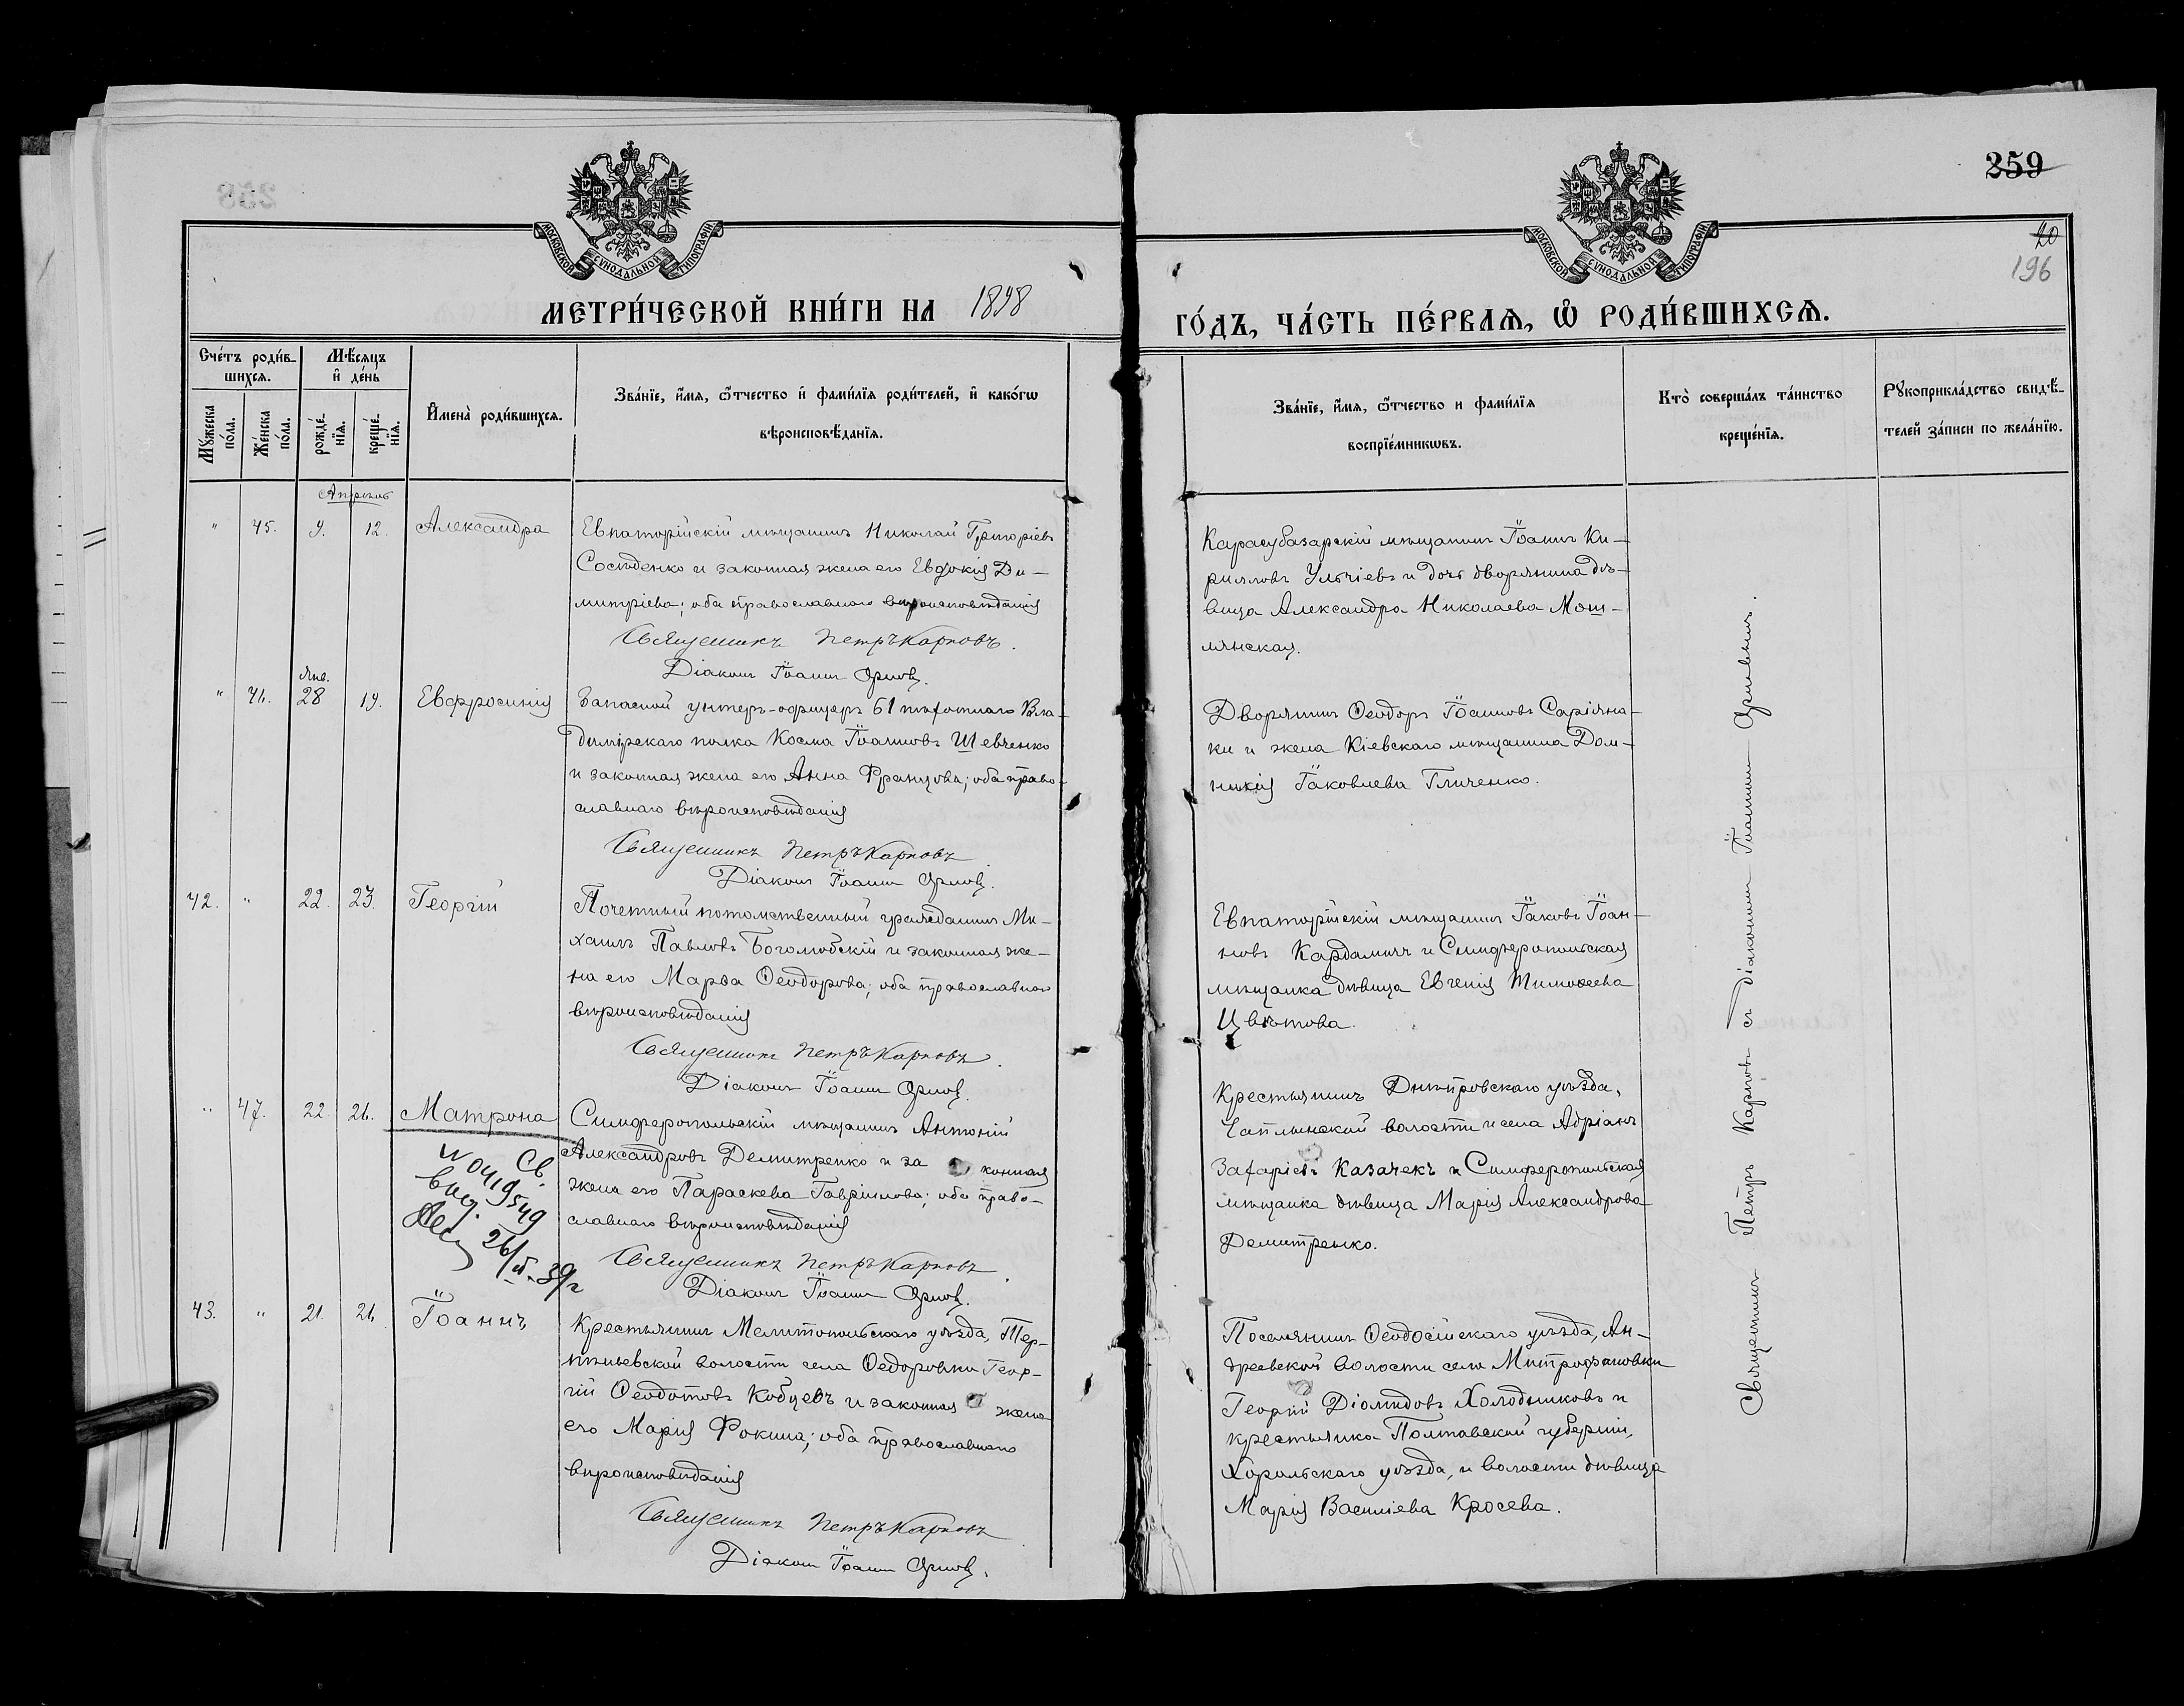 259
20
196
МОСКОВСКОЙ СѴНОДАЛЬНОЙ ТИПОГРАФІИ
МОСКОВСКОЙ СѴНОДАЛЬНОЙ ТИПОГРАФІИ
МЕТРИ́ЧЕСКОЙ КНИ́ГИ НА 1898
ГО́ДЪ, ЧА́СТЬ ПЕ́РВАѦ, Ѡ҆ РОДИ́ВШИХСѦ.
Сче́тъ роди́в-
шихсѧ.
Мѣ́сѧцъ
и҆ де́нь
Мꙋ́жеска
по́ла.
Же́нска
по́ла.
рожде́-
нїѧ.
креще́-
нїѧ.
И҆мена̀ роди́вшихсѧ.
Зва́нїе, и҆́мѧ, ѻ҆́тчество и҆ фами́лїѧ роди́телей, и҆ како́гѡ
вѣроисповѣ́данїѧ.
Зва́нїе, и҆́мѧ, ѻ҆́тчество и фами́лїѧ
воспрїе́мникѡвъ.
Кто̀ соверша́лъ та́инство
креще́нїѧ.
Рꙋкоприкла́дство свидѣ́-
телей за́писи по жела́нїю.
Апрель
" 45. 9. 12. Александра
Евпаторійскій мѣщанинъ Николай Григоріевъ
Сосѣденко и законная жена его Евдокія Ди-
митріева; оба православнаго вѣроисповѣданія
Священникъ Петръ Карповъ.
Діаконъ Іоаннъ Орловъ.
Карасубазарскій мѣщанинъ Іоаннъ Ки-
рилловъ Ульчіевъ и дочь дворянина дѣ-
вица Александра Николаева Мош-
лянская.
Янв.
" 46. 28 19. Евфросинія
Запасной унтеръ-офицеръ 61 пѣхотнаго Вла-
димірскаго полка Косма Іоанновъ Шевченко
и законная жена его Анна Францова; оба право-
славнаго вѣроисповѣданія
Священникъ Петръ Карповъ
Діаконъ Іоаннъ Орловъ.
Дворянинъ Ѳеодоръ Іоанновъ Саріяна-
ки и жена Кіевскаго мѣщанина Дом-
никія Іаковлева Гличенко.
42. " 22. 23. Георгій
Почетный потомственный гражданинъ Ми-
хаилъ Павловъ Боголюбскій и законная же-
на его Марѳа Ѳеодорова; оба православнаго
вѣроисповѣданія
Священникъ Петръ Карповъ.
Діаконъ Іоаннъ Орловъ.
Евпаторійскій мѣщанинъ Іаковъ Іоан-
новъ Кардамичъ и Симферопольская
мѣщанка дѣвица Евгенія Тимоѳеева
Цвѣтова.
" 47. 22. 26. Матрона
Симферопольскій мѣщанинъ Антоній
Александровъ Демитренко и за конная
жена его Параскева Гавріилова; оба право-
славнаго вѣроисповѣданія
Священникъ Петръ Карповъ.
Діаконъ Іоаннъ Орловъ.
Св.
26/
39г
Крестьянинъ Днѣпровскаго уѣзда,
Чаплынской волости и села Адріанъ
Захаріевъ Казачекъ и Симферопольская
мѣщанка дѣвица Марія Александрова
Демитренко.
43. " 21. 26. Іоаннъ
Крестьянинъ Мелитопольскаго уѣзда, Тер-
пѣньевской волости села Ѳедоровки Геор-
гій Ѳеодотовъ Кобцевъ и законная жена
его Марія Фокина; оба православнаго
вѣроисповѣданія
Священникъ Петръ Карповъ
Діаконъ Іоаннъ Орловъ.
Поселянинъ Ѳеодосійскаго уѣзда, Ан-
дреевской волости села Митрофановки
Георгій Діомидовъ Холодняковъ и
крестьянка Полтавской губерніи,
Хорольскаго уѣзда, и волости дѣвица
Марія Василіева Кросева.
Священникъ Петръ Карповъ съ діакономъ Іоанномъ Орловымъ.